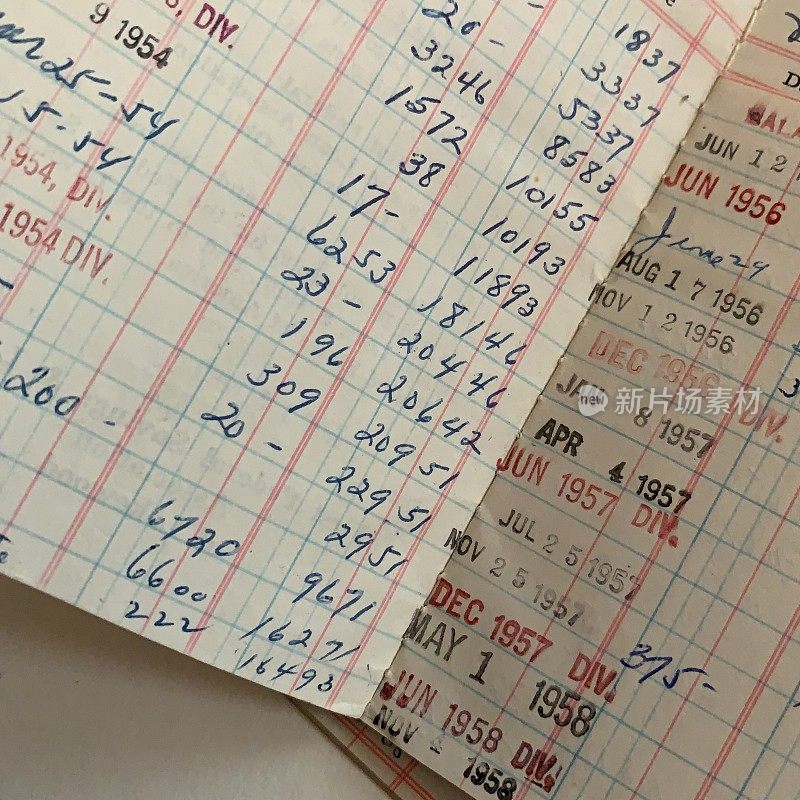 S, DIV.
9 1954
25-54
15-54
1954, DIV.
1954 DIV.
200 -
20 -
1837
3246
3337
1572
5337
38
8583
17 -
10155
6253
10193
23 -
11893
196
18146
309
20446
20 -
20642
20951
22951
2951
6720
9671
6600
16271
222
16493
JUN 12
JUN 1956
June 29
AUG 17 1956
NOV 12 1956
DEC 1956 DIV.
JAN 8 1957
APR 4 1957
JUN 1957 DIV.
JUL 25 1957
NOV 25 1957
DEC 1957 DIV.
375 -
MAY 1 1958
JUN 1958 DIV.
NOV 1958
new 新片场素材